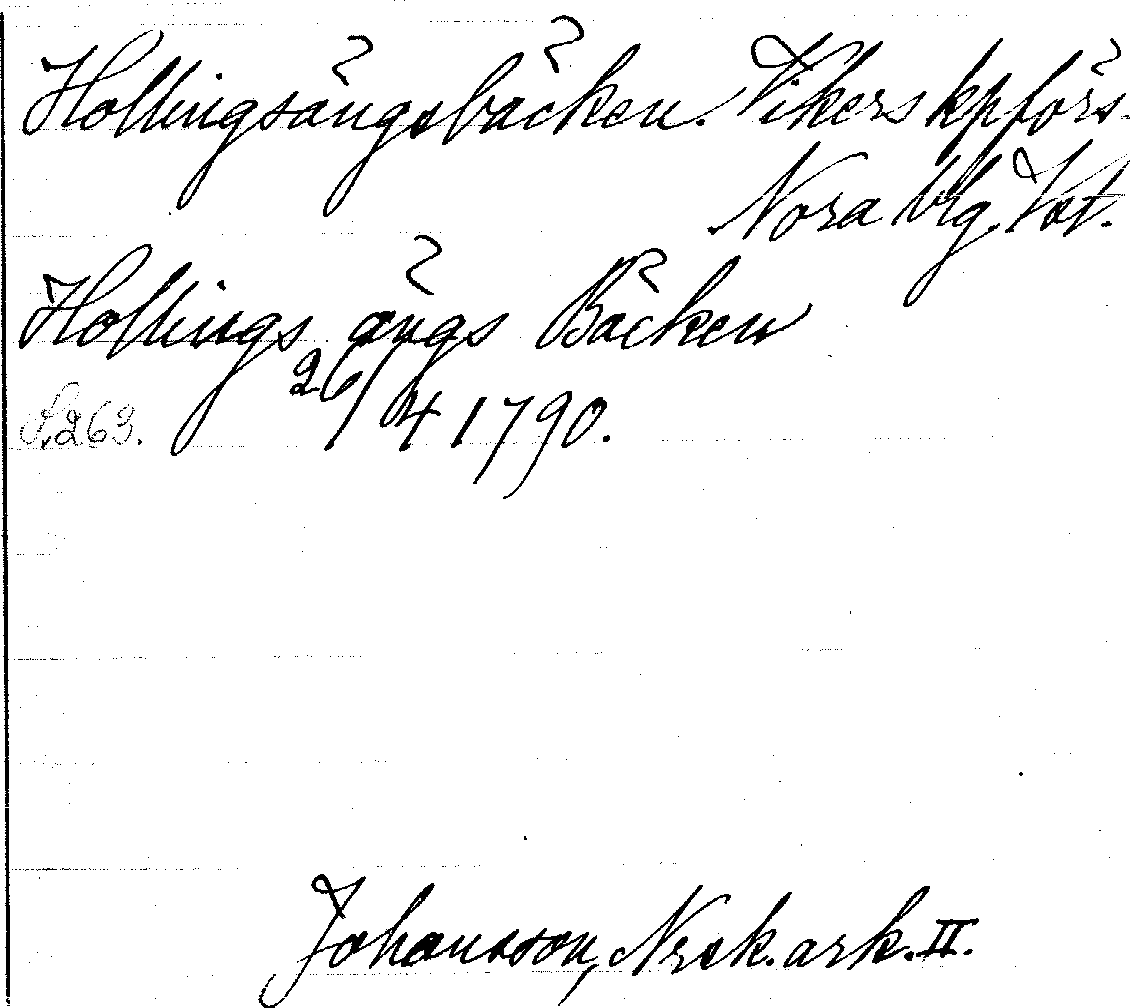 Hollingsängsbäcken. Vikers kpförs.
Nora blg. Vst.
Hollings ängs Bäcken
26/4 1790.
S. 263.
Johansson, Nrsk. ark. II.